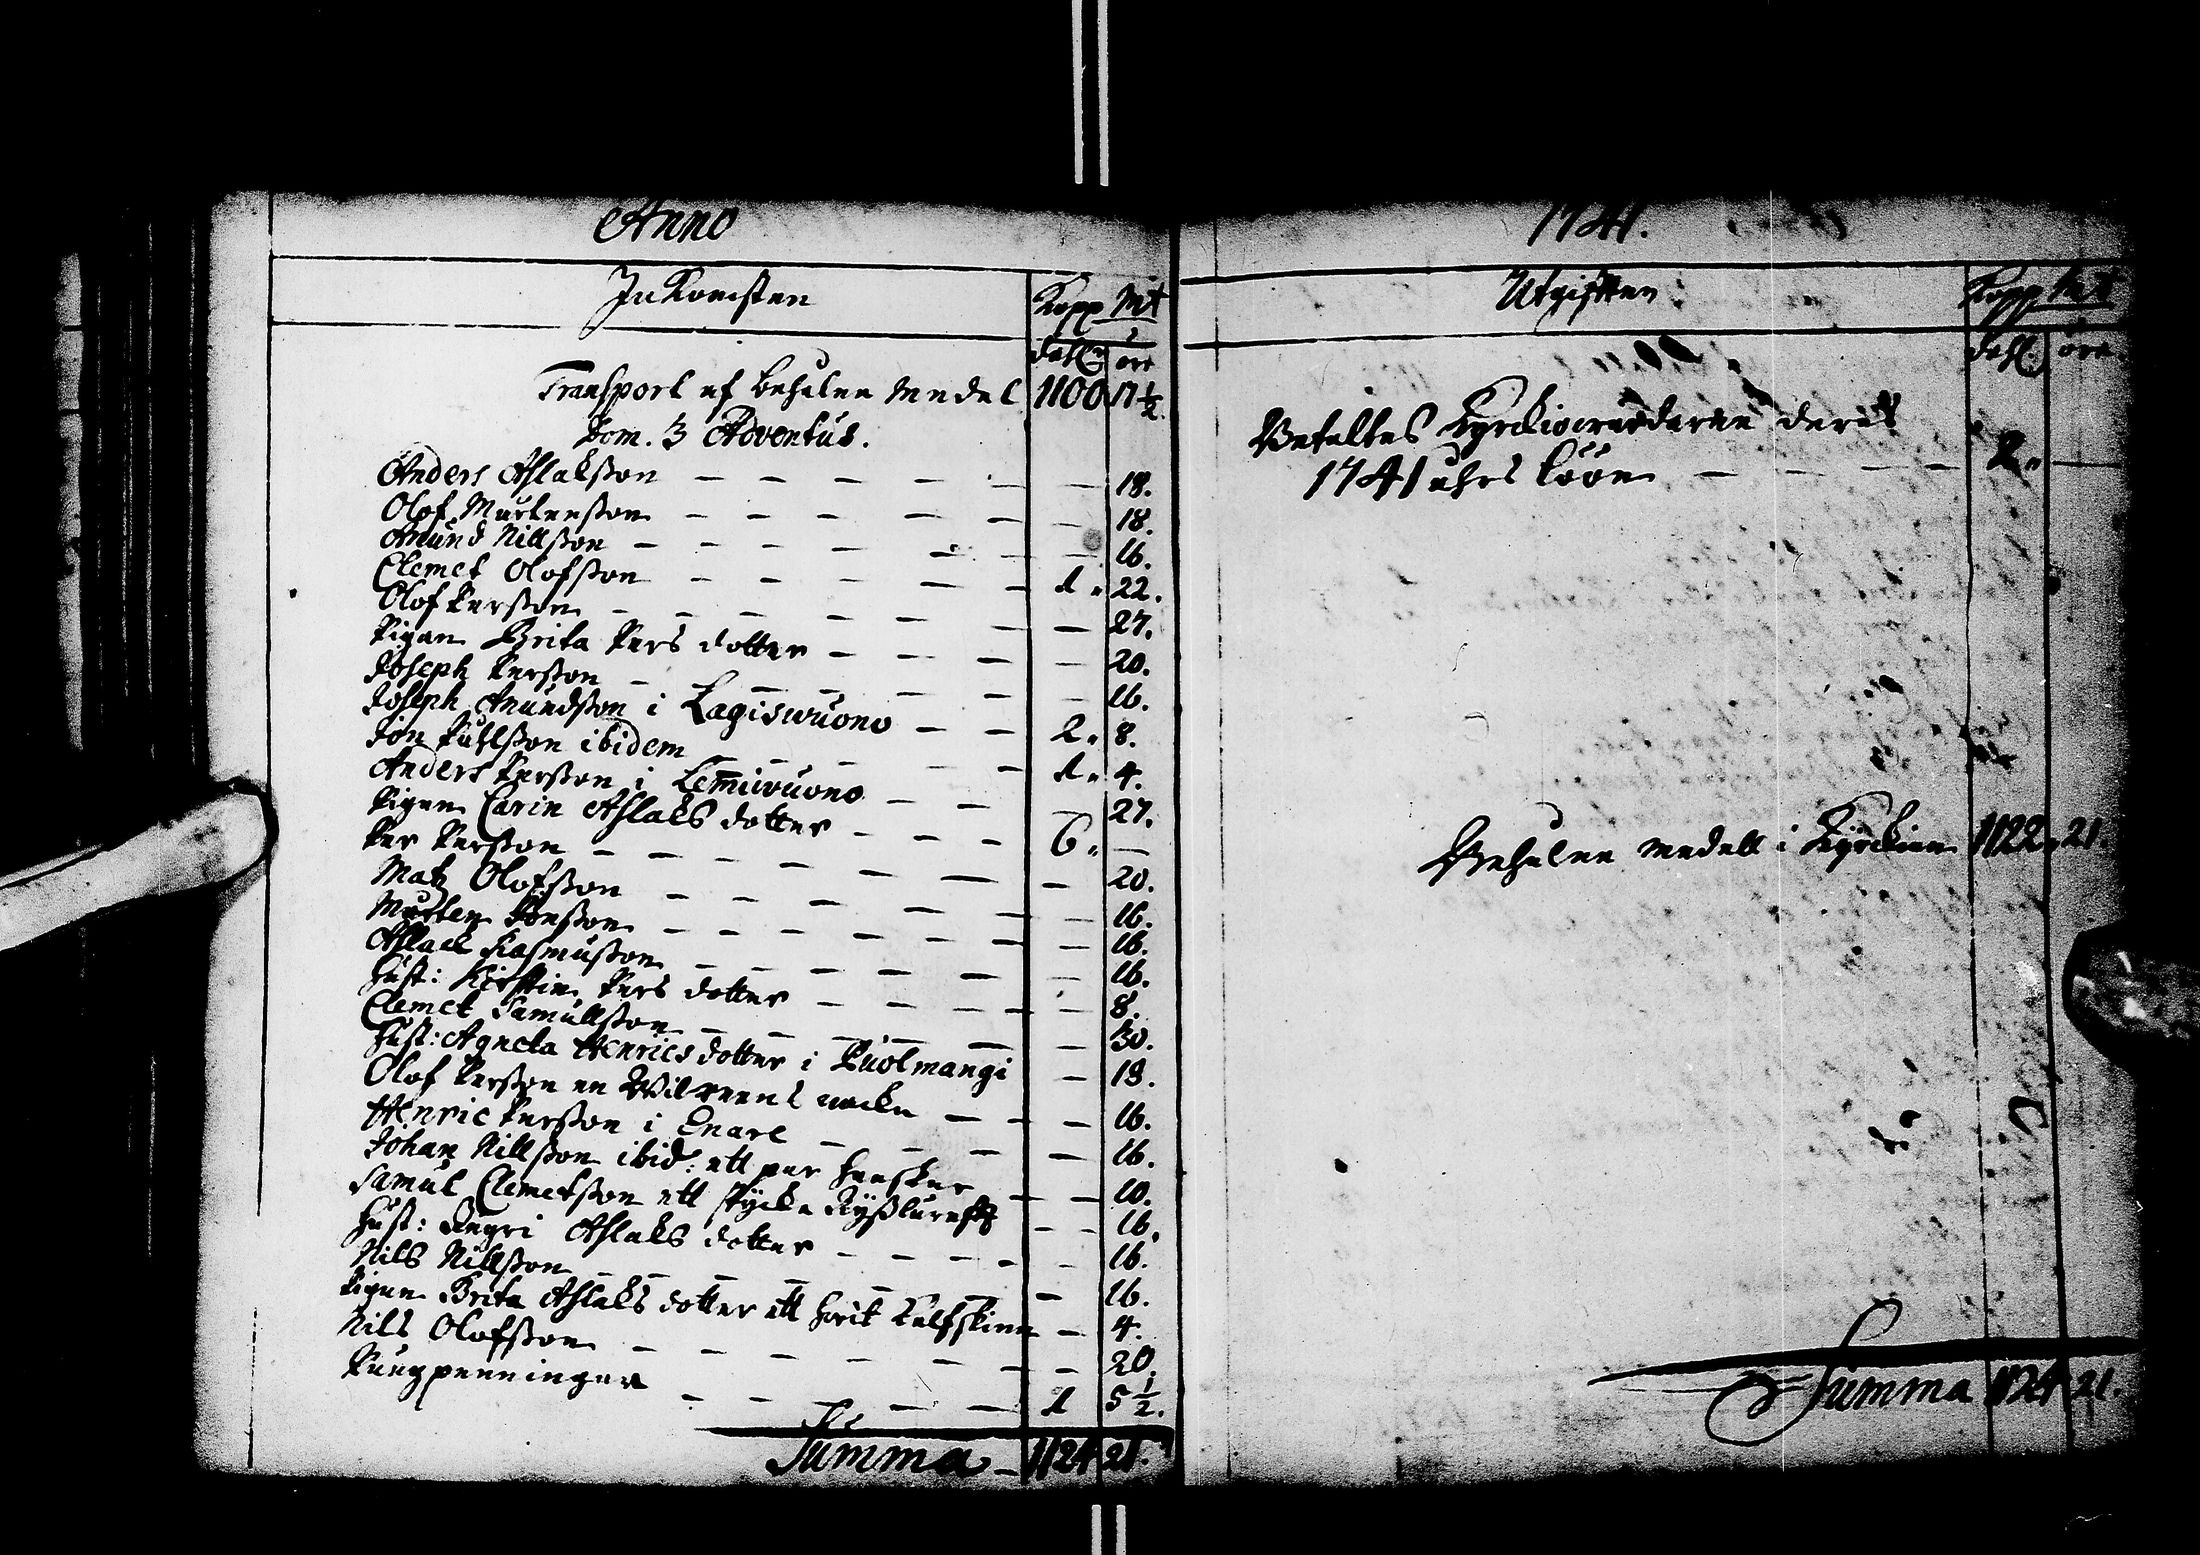 Anno
Inkombsten Kopp Mt
dahlr öre
Transport af behålne Medel 1100 17 1/2.
Dom. 3 Adventus.
Anders Aslaksson — — — — — — 18.
Olof Mårtensson — — — — — — 18.
Anund Nillsson — — — — — — 16.
Clemet Olofsson — — — — — 1. 22.
Olof Persson — — — — — — 27.
Pigan Brita Pers dotter — — — — 20.
Joseph Persson — — — — — — 16.
Joseph Anundsson i Lagiswuono — — 2. 8.
Jon Påhlsson ibidem — — — — 1. 4.
Anders Persson i Lemiwuono — — — 27.
Pigan Carin Aslaks dotter — — — 6. —
Per Persson — — — — — — 20.
Matz Olofsson — — — — — — 16.
Mårten Jonsson — — — — — — 16.
Aslack Rasmusson — — — — — — 16.
Hust: Kirstin Pers dotter — — — — 8.
Clemet Samulsson — — — — — — 30.
Hust: Agneta Henrics dotter i Puolmangi — 18.
Olof Persson en Wilreens nacka — — — 16.
Henric Persson i Enare — — — — 16.
Johan Nillsson ibid: ett par handskar — — 10.
Samul Clemetsson ett stycke Ryßlärft — — 16.
Hust: Ingri Aslaks dotter — — — — 16.
Nils Nillsson — — — — — — 16.
Pigan Brita Aslaks dotter ett hvit Kalfskinn — 4.
Nils Olofsson — — — — — — 20.
Pungpenningar — — — — 1 5 1/2.
Summa — 1124 21.
1741.
Utgiften: Kopp Mt
dahl. öre
Betaltes Kyrckiowärdarne deras
1741 åhrs löön — — — — 2. —
Behålne medell i Kyrckian 1122. 21.
Summa 1124 21.